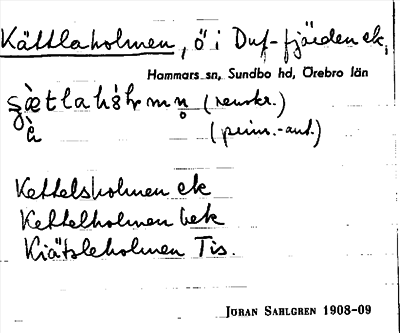 Kättlaholmen, ö i Duf-fjärden ek.
Hammars sn, Sundbo hd, Örebro län
(renskr.)
à (prim.-ant.)
Kettelsholmen ek
Kettelholmen bek
Kiätsleholmen Tis.
JÖRAN SAHLGREN 1908-09